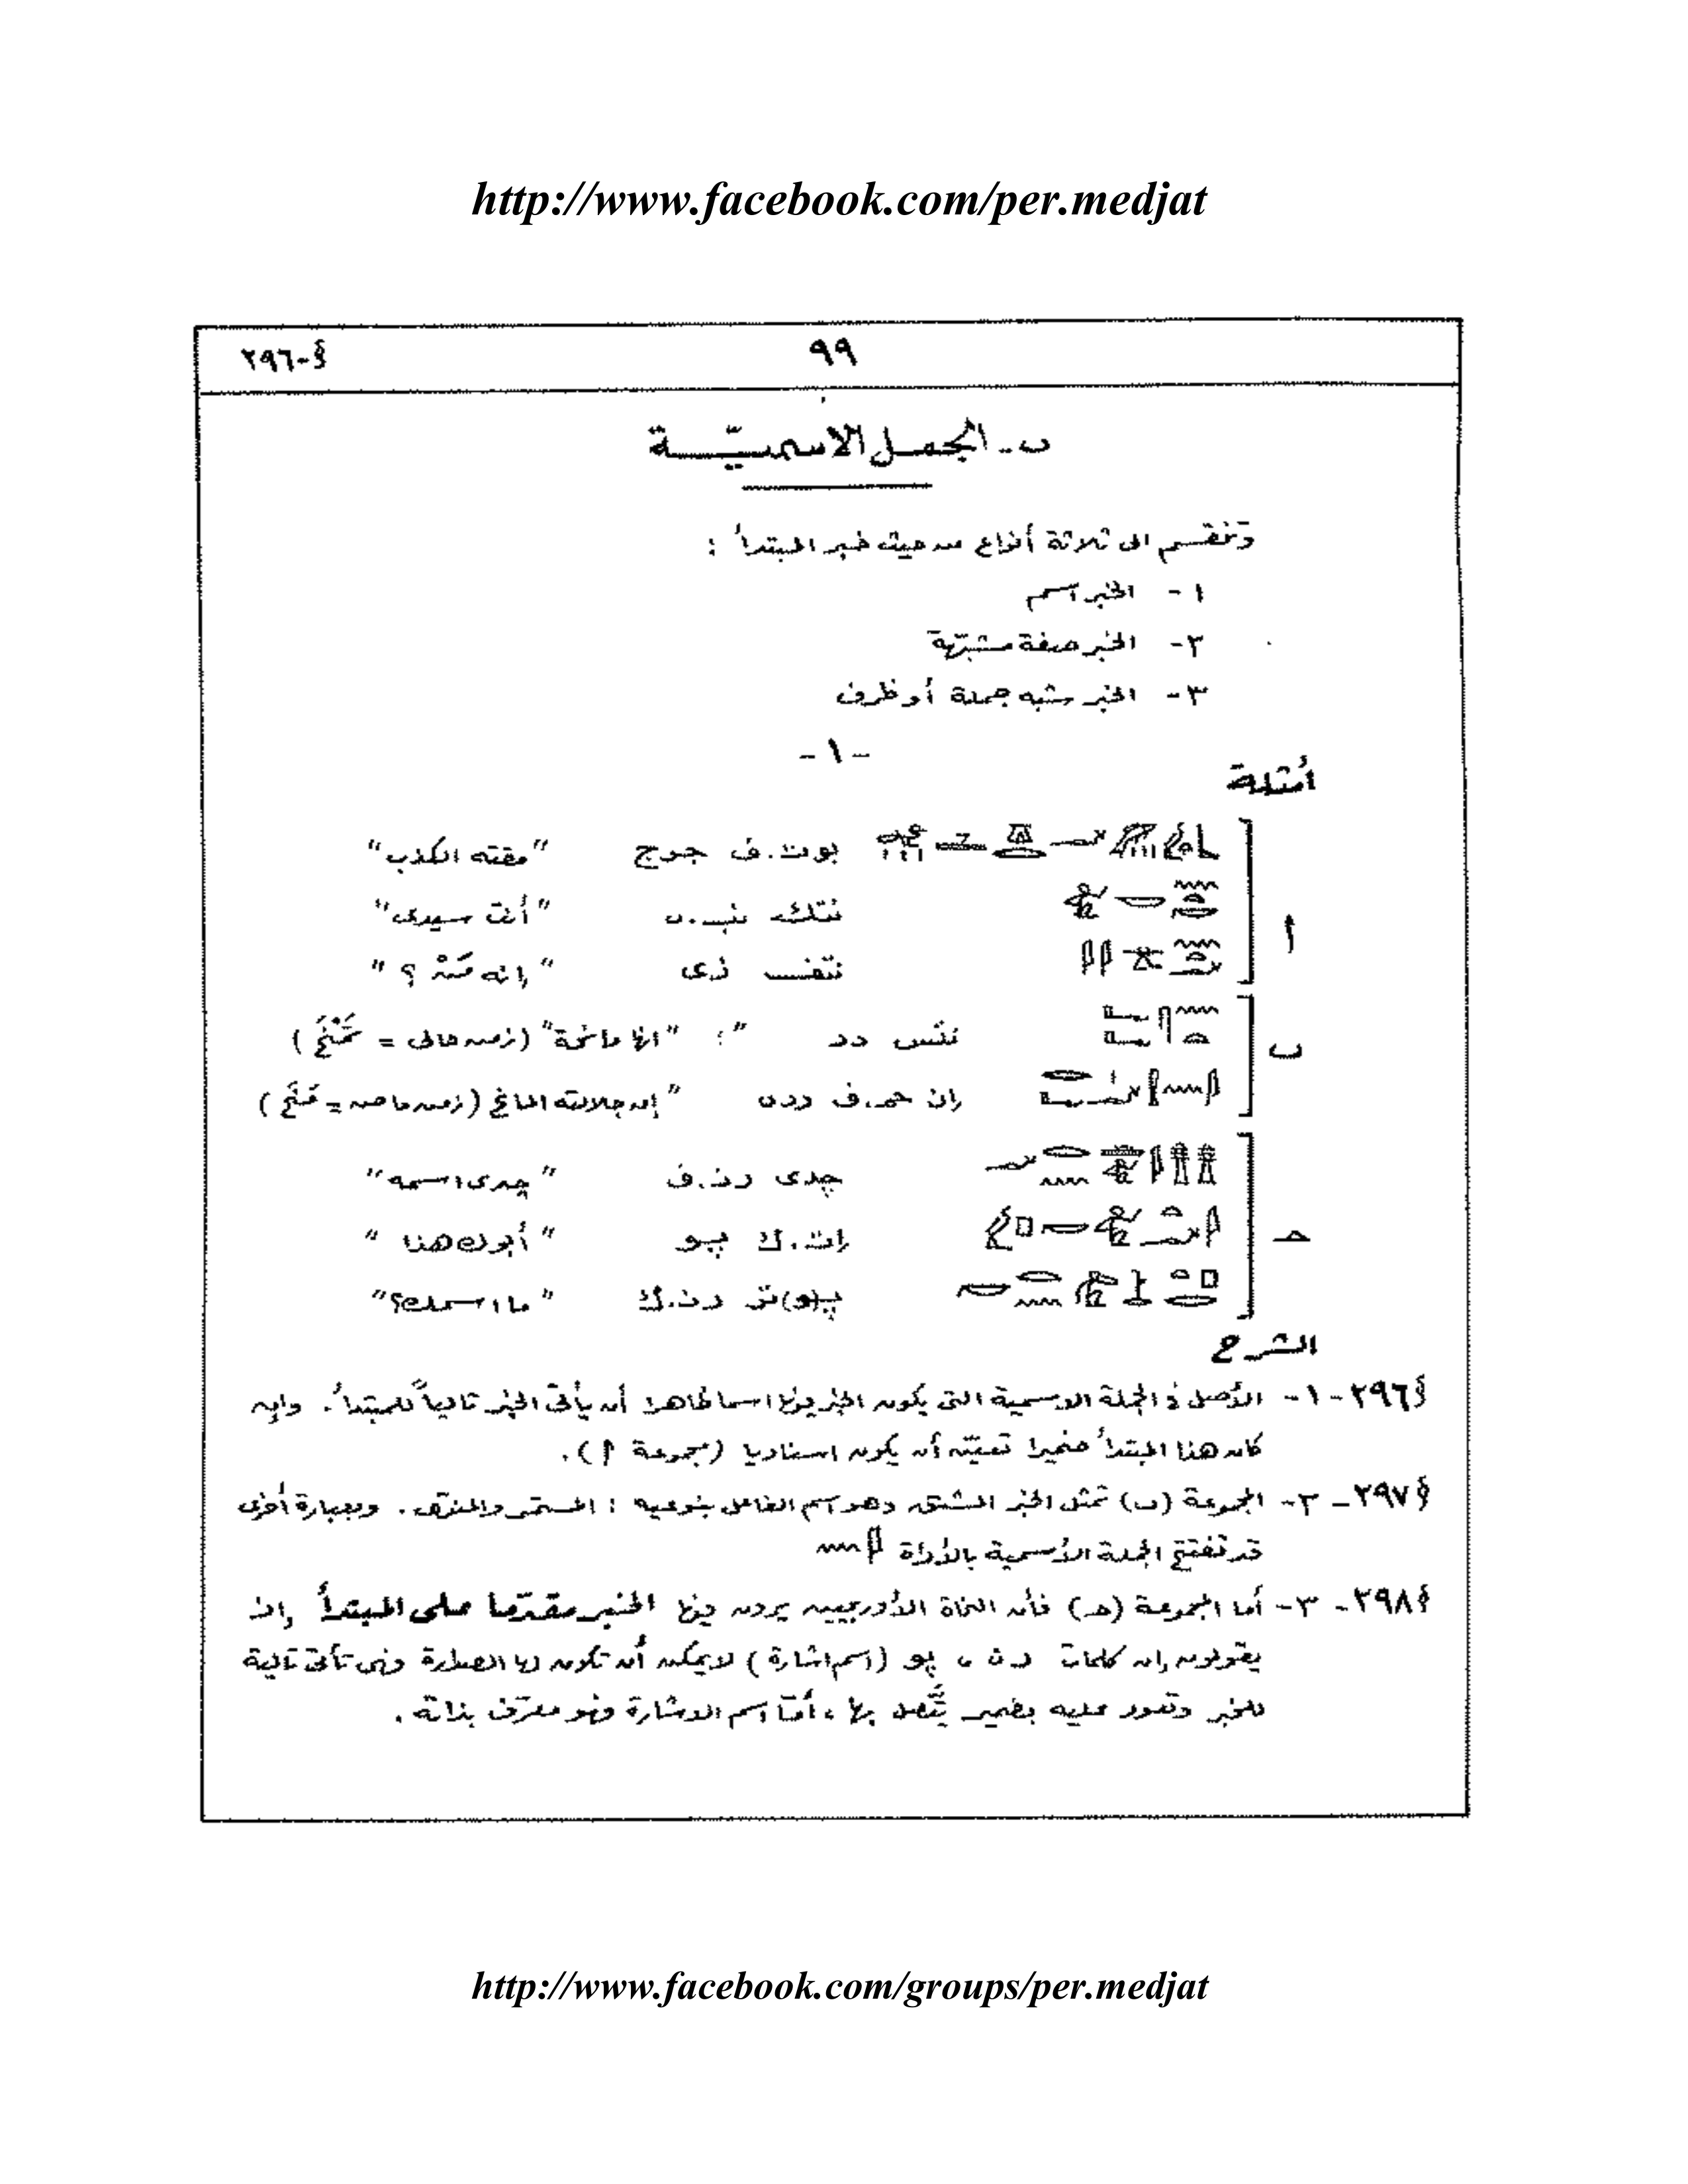 http://www.facebook.com/per.medjat
٩٩
§-٢٩٦
ب- الجمل الاسميّة
وتنقسم الى ثلاثة أنواع من حيث خبر المبتدأ :
١- الخبر اسم
٢- الخبر صفة مشبّهة
٣- الخبر شبه جملة أو ظرف
-١-
أمثلة
أ
بوت.ف جرج "مقته الكذب"
نتك نب.ى "أنت سيدى"
نتف زى "إنه مَنْ ؟"
ب
نتس دد "انها مانحة" (زمن حالى = تَمْنَح)
إن حم.ف ددن "إن جلالته المانح (زمن ماض = مَنَح)
حـ
چدى رن.ف "چدى اسمه"
إت.ك پو "أبوك هذا"
پ(و)تر رن.ك "ما اسمك؟"
الشرح
§٢٩٦-١- الأصل فى الجملة الاسمية التى يكون الخبر فيها اسما ظاهرا أن يأتى الخبر تالياً للمبتدأ. وإن
كان هذا المبتدأ ضميرا تعيّن أن يكون اسناديا (مجموعة أ).
§٢٩٧-٢- المجموعة (ب) تمثل الخبر المشتق وهو اسم الفاعل بنوعيه : المستمر والمنتهى. وبعبارة أخرى
قد تفتتح الجملة الأسمية بالأداة
§٢٩٨-٣- أما المجموعة (حـ) فأن النحاة الأوربيين يرون فيها الخبر مقدّما على المبتدأ إذ
يقولون إن كلمات رن ، پو (اسم اشارة) لا يمكن أن تكون لها الصدارة فهى تأتى تالية
للخبر وتعود عليه بضمير يتّصل بها ، أمّا اسم الاشارة فهو معرّف بذاته .
http://www.facebook.com/groups/per.medjat